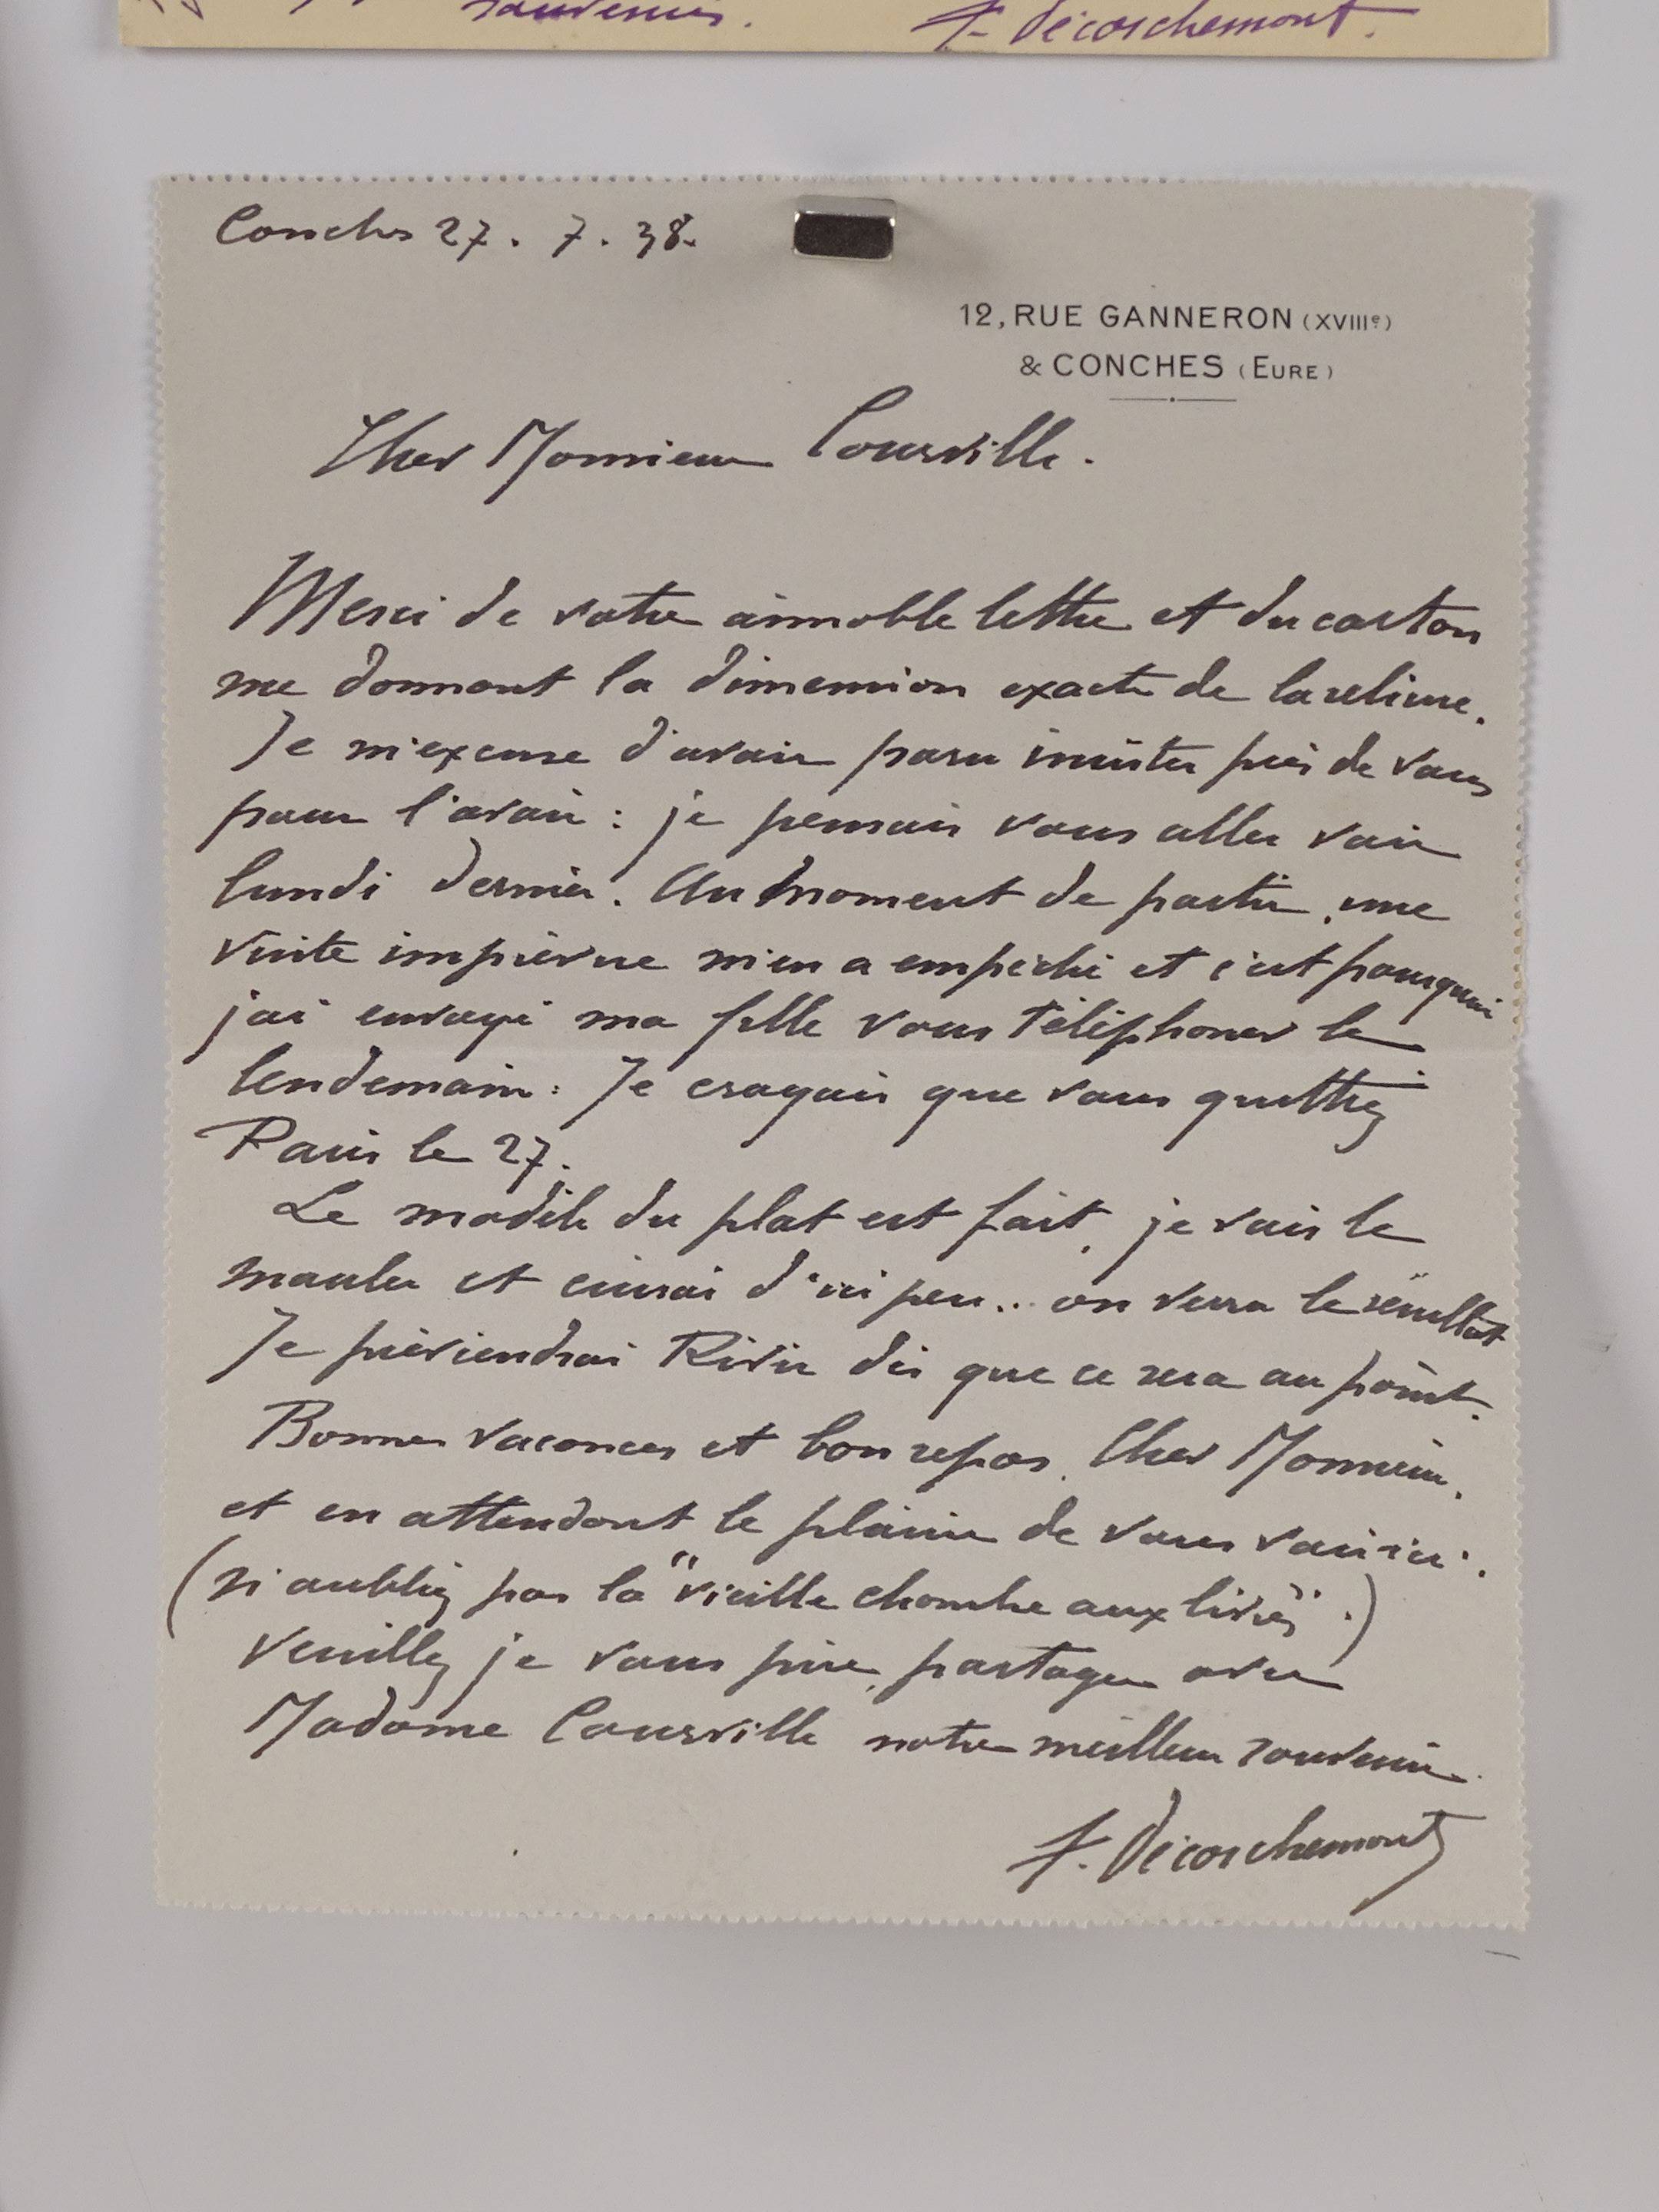 souvenirs. F. Décorchemont.
Conches 27. 7. 38.
12, RUE GANNERON (XVIIIe)
& CONCHES (EURE)
Cher Monsieur Courville.
Merci de votre aimable lettre et du carton
me donnant la dimension exacte de la reliure.
Je m'excuse d'avoir paru insister près de vous
pour l'avoir : je pensais vous aller voir
lundi dernier. Au moment de partir, une
visite imprévue m'en a empêché et c'est pourquoi
j'ai envoyé ma fille vous téléphoner le
lendemain : Je croyais que vous quittiez
Paris le 27.
Le modèle du plat est fait, je vais le
mouler et cuirai d'ici peu.. on verra le résultat
Je préviendrai Rivir dès que ce sera au point.
Bonnes vacances et bon repos, Cher Monsieur,
et en attendant le plaisir de vous voir ici.
(n'oubliez pas la "vieille chambre aux livres".)
veuillez je vous prie, partager avec
Madame Courville notre meilleur souvenir.
F. Décorchemont